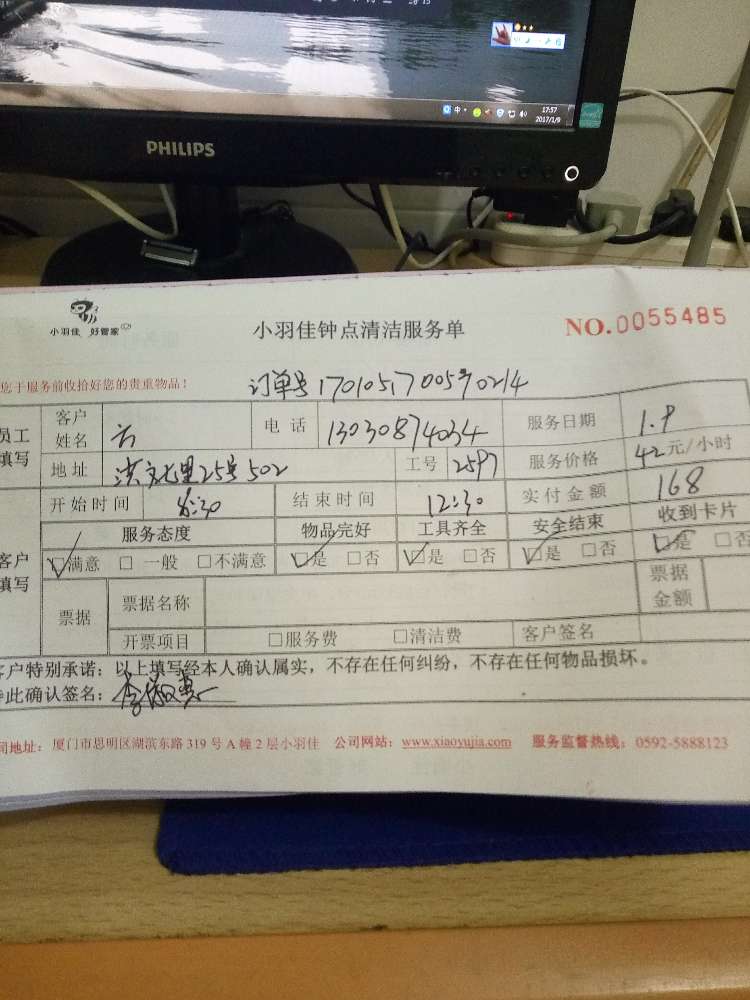 17:57
2017/1/9
PHILIPS
小羽佳 好管家
小羽佳钟点清洁服务单
NO.0055485
您于服务前收拾好您的贵重物品！
订单号
员工填写
客户姓名
电话 13030874034
服务日期 1.9
地址 洪文七里25号502
工号 2597
服务价格 42元/小时
开始时间 8:30
结束时间 12:30
实付金额 168
客户填写
服务态度 物品完好 工具齐全 安全结束 收到卡片
☑满意 □一般 □不满意 ☑是 □否 ☑是 □否 ☑是 □否 ☑是 □否
票据
票据名称
票据金额
开票项目 □服务费 □清洁费 客户签名
客户特别承诺：以上填写经本人确认属实，不存在任何纠纷，不存在任何物品损坏。
此确认签名：
司地址：厦门市思明区湖滨东路319号A幢2层小羽佳 公司网站：www.xiaoyujia.com 服务监督热线：0592-5888123